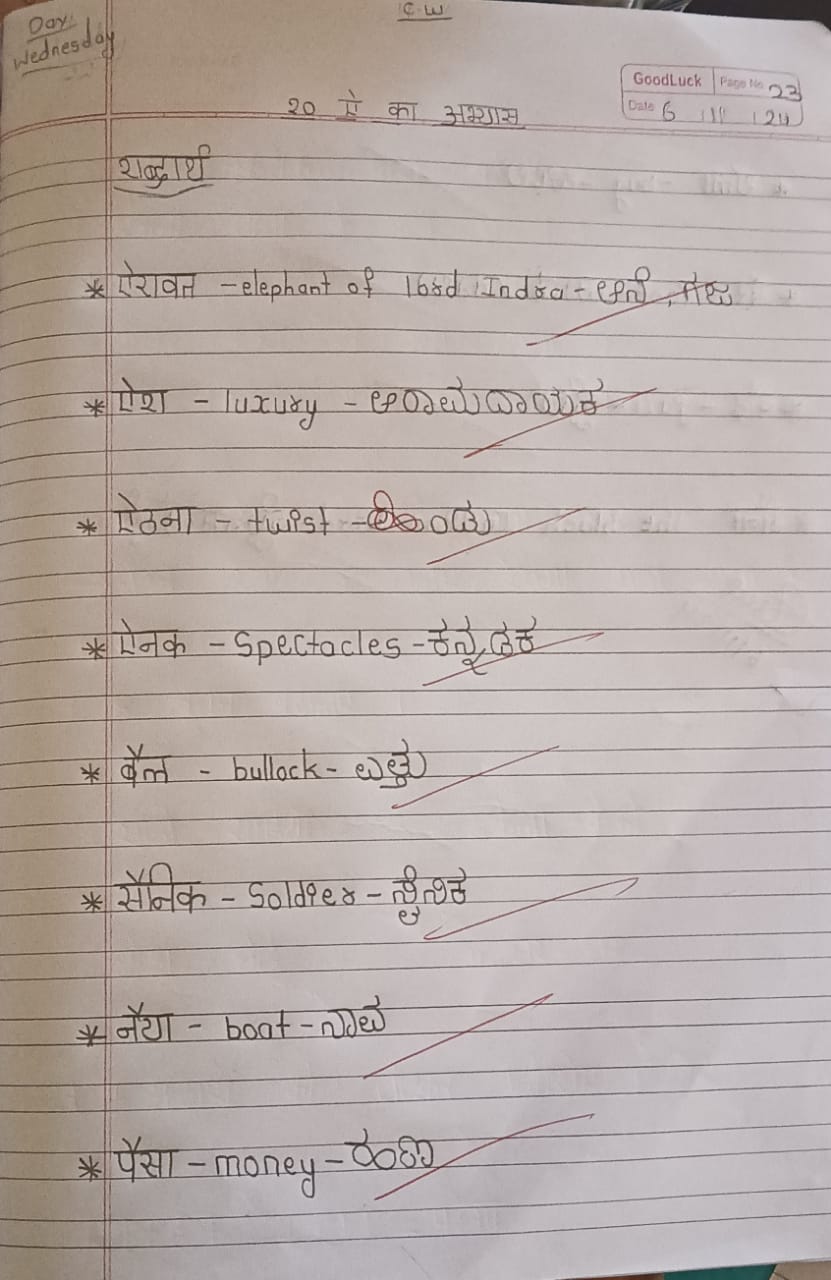 C.W
Day:
Wednesday
GoodLuck Page No. 23
Date 6 11 24
20 ऐ का अभ्यास
शब्दार्थ
* ऐरावत - elephant of lord Indra - ಆನೆ, ಗಜ
* ऐश - luxury - ಆರಾಮದಾಯಕ
* ऐठना - twist -
* ऐनक - Spectacles - ಕನ್ನಡಕ
* बैल - bullock - ಎತ್ತು
* सैनिक - Soldier - ಸೈನಿಕ
* नैया - boat - ನಾವ
* पैसा - money -